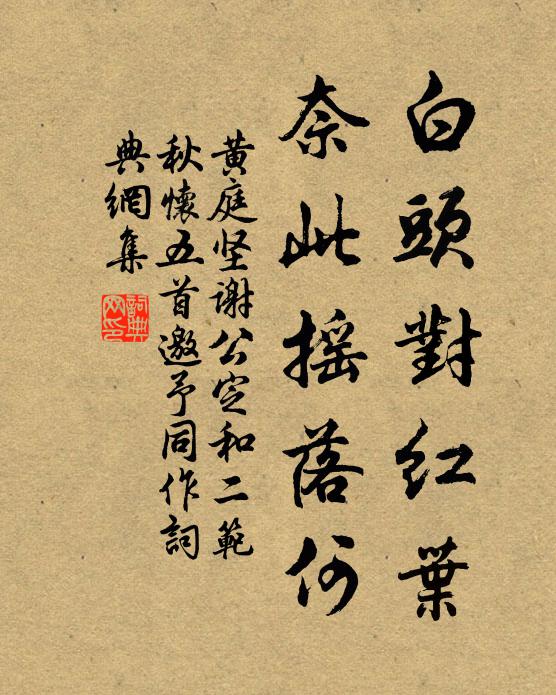 白頭對紅葉
奈此摇落何
黄庭坚謝公定和二範
秋懷五首邀予同作詞
典網集
詞典
网印